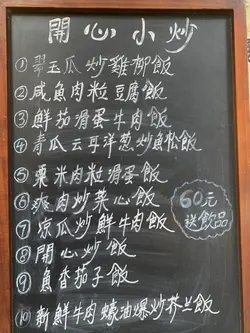 開心小炒
①翠玉瓜炒雞柳飯
②咸魚肉粒豆腐飯
③鮮茄滑蛋牛肉飯
④青瓜云耳洋葱炒魚松飯
⑤粟米肉粒滑蛋飯
⑥爽肉炒菜心飯
⑦凉瓜炒鮮牛肉飯
⑧開心炒飯
⑨魚香茄子飯
⑩新鮮牛肉蠔油爆炒芥兰飯
60元
送飲品